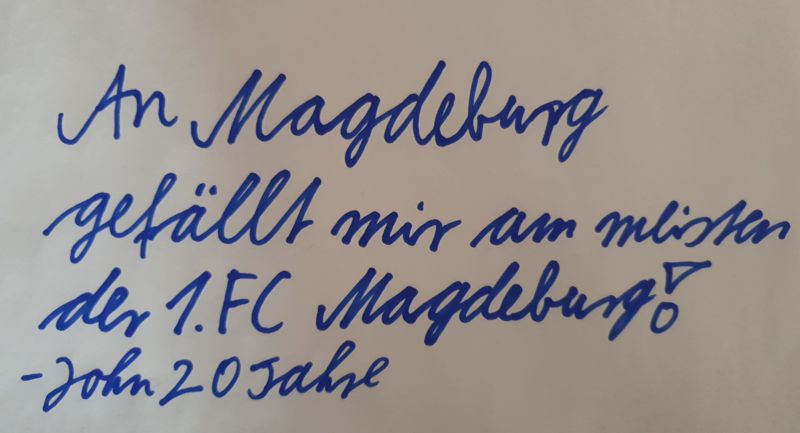 An Magdeburg
gefällt mir am meisten
der 1. FC Magdeburg!
- John 20 Jahre